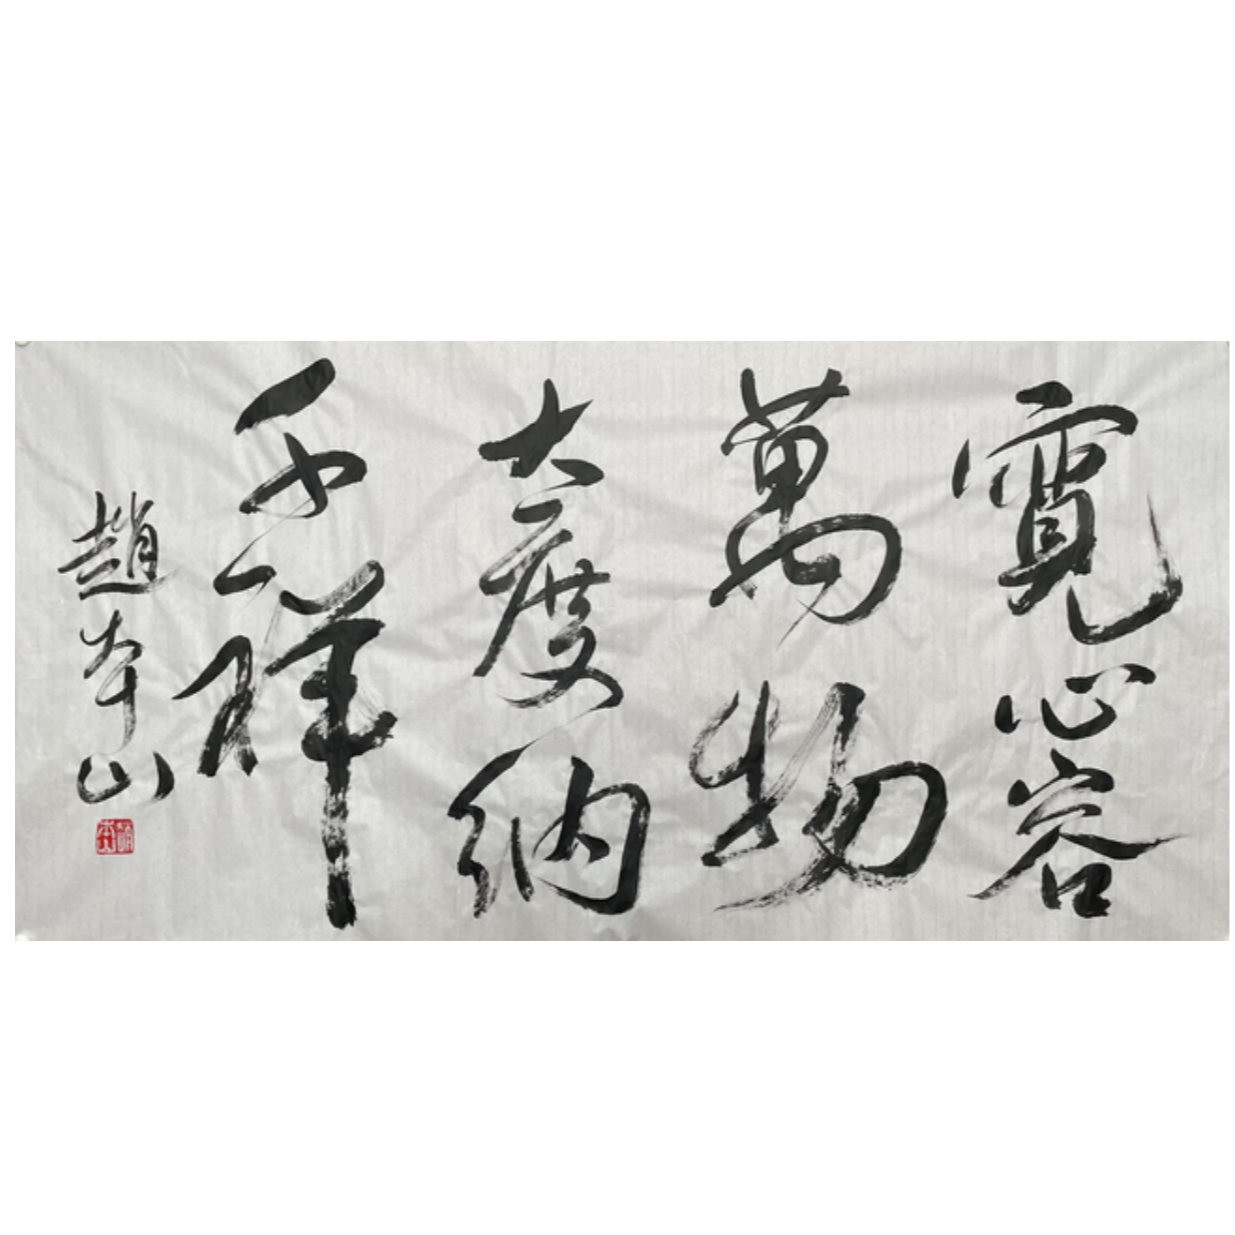 寬心容
萬物
大度納
百祥
趙本山